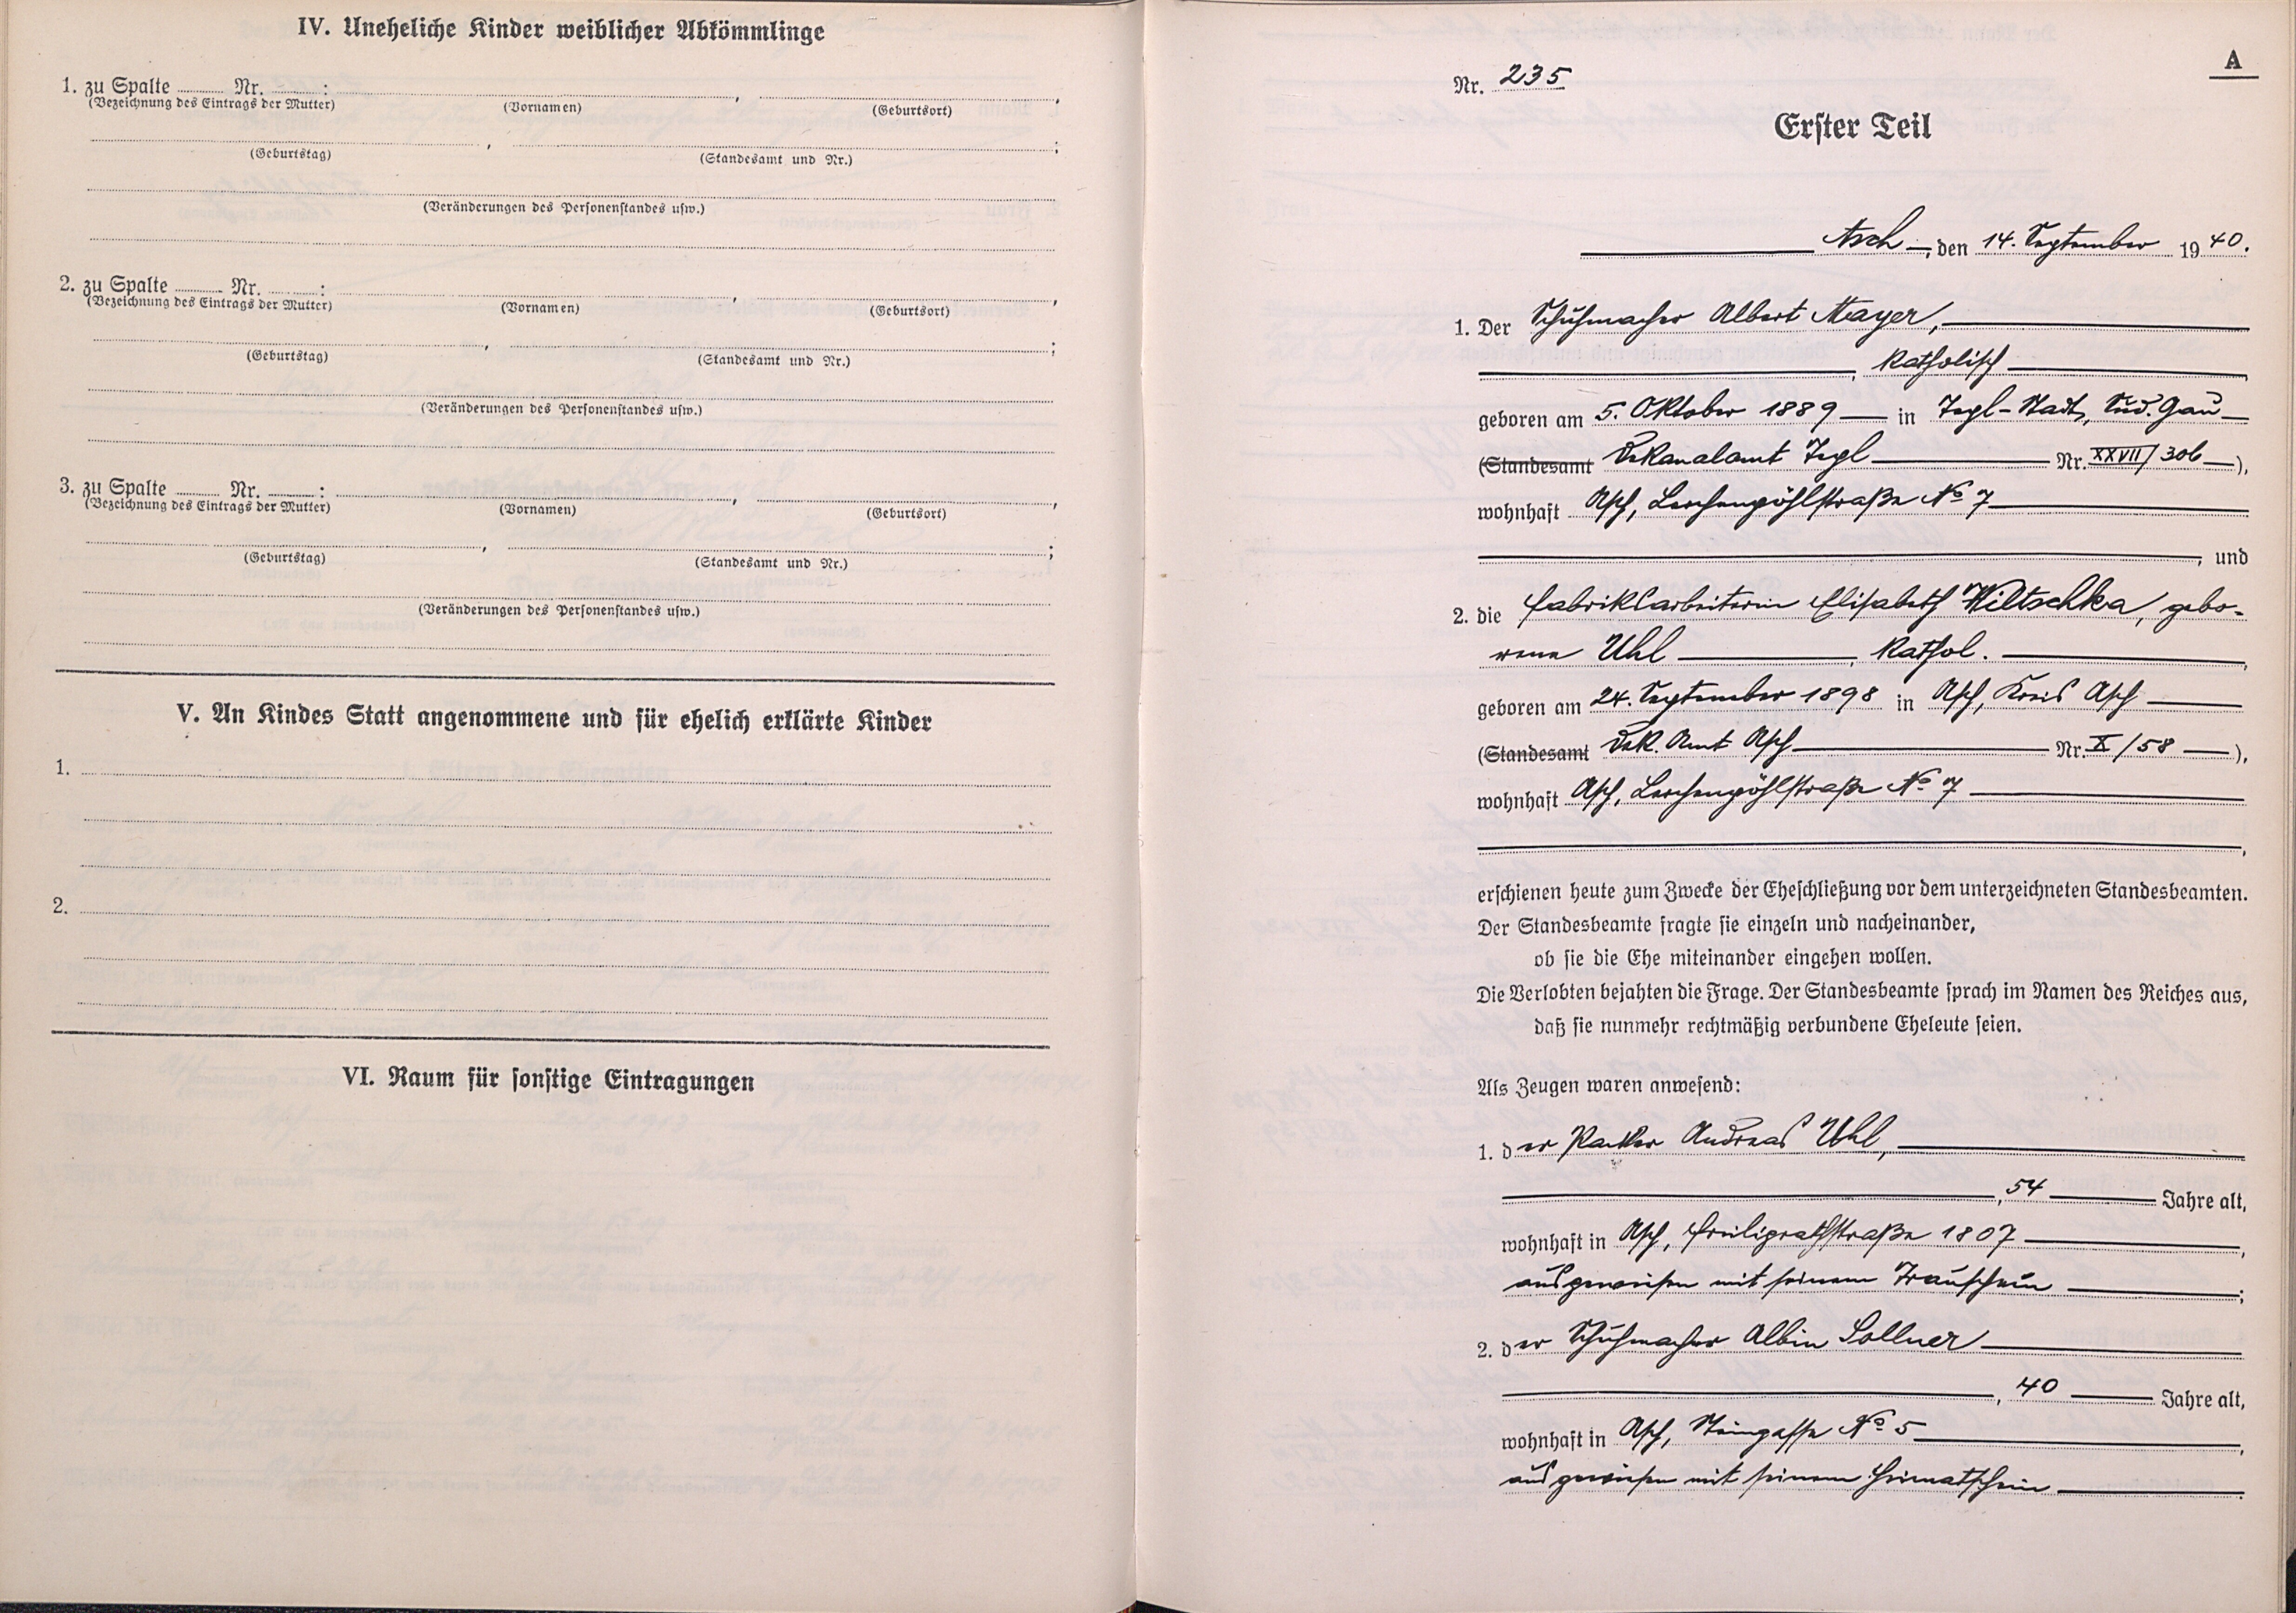 IV. Uneheliche Kinder weiblicher Abkömmlinge
1. zu Spalte ........ Nr. ........ :
(Bezeichnung des Eintrags der Mutter) (Vornamen) (Geburtsort)
(Geburtstag) (Standesamt und Nr.)
(Veränderungen des Personenstandes usw.)
2. zu Spalte ........ Nr. ........ :
(Bezeichnung des Eintrags der Mutter) (Vornamen) (Geburtsort)
(Geburtstag) (Standesamt und Nr.)
(Veränderungen des Personenstandes usw.)
3. zu Spalte ........ Nr. ........ :
(Bezeichnung des Eintrags der Mutter) (Vornamen) (Geburtsort)
(Geburtstag) (Standesamt und Nr.)
(Veränderungen des Personenstandes usw.)
V. An Kindes Statt angenommene und für ehelich erklärte Kinder
1.
2.
VI. Raum für sonstige Eintragungen
A
Nr. 235
Erster Teil
Asch, den 14. September 1940.
1. Der Schuhmacher Albert Mayer,
, katholisch
geboren am 5. Oktober 1889 in Stadt, Sud. Gau
(Standesamt Dekanalamt Nr. XXVII/306),
wohnhaft Asch, Lerchenpöhlstraße No 7
, und
2. die Fabriksarbeiterin Elisabeth Wiltschka, gebo-
rene Uhl, kathol.
geboren am 24. September 1898 in Asch, Kreis Asch
(Standesamt Dek. Amt Asch Nr. X/58),
wohnhaft Asch, Lerchenpöhlstraße No 7
erschienen heute zum Zwecke der Eheschließung vor dem unterzeichneten Standesbeamten.
Der Standesbeamte fragte sie einzeln und nacheinander,
ob sie die Ehe miteinander eingehen wollen.
Die Verlobten bejahten die Frage. Der Standesbeamte sprach im Namen des Reiches aus,
daß sie nunmehr rechtmäßig verbundene Eheleute seien.
Als Zeugen waren anwesend:
1. der Packer Andreas Uhl,
, 54 Jahre alt,
wohnhaft in Asch, Freiligrathstraße 1807,
ausgewiesen mit seinem Trauschein;
2. der Schuhmacher Albin Sollner
, 40 Jahre alt,
wohnhaft in Asch, Steingasse No 5,
ausgewiesen mit seinem Heimatschein.